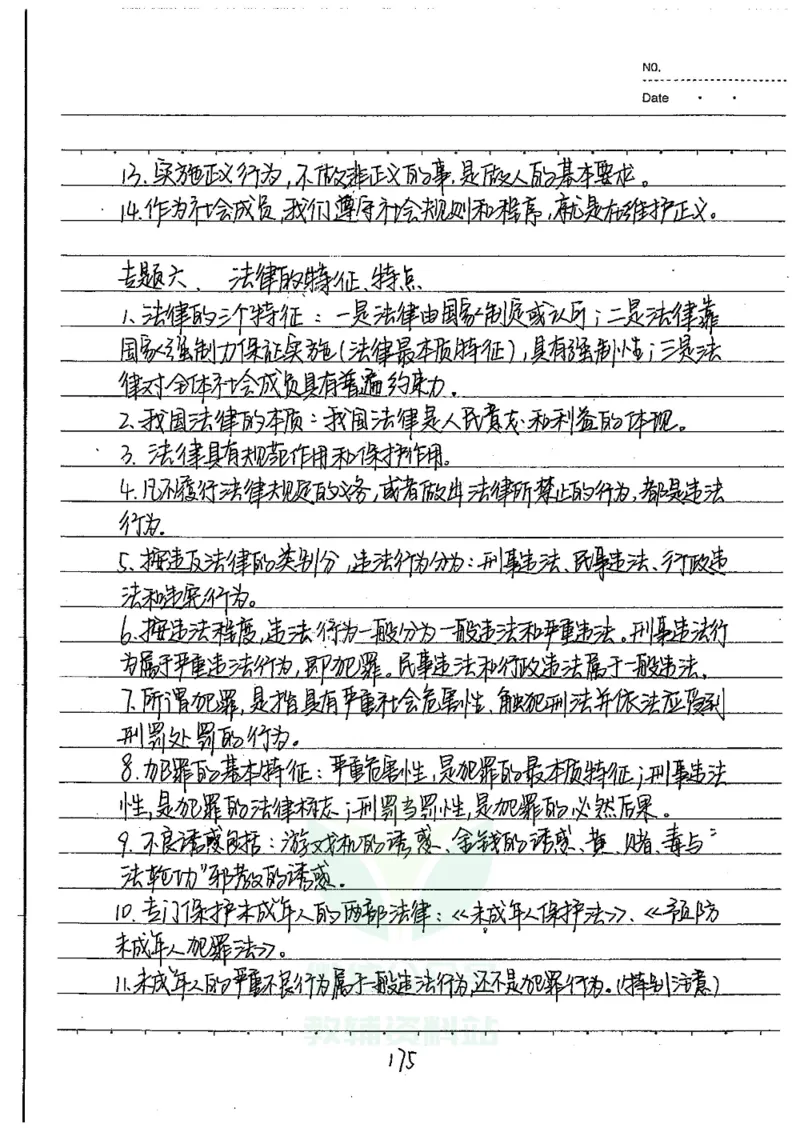 NO.
Date
13.实施正义行为,不做非正义的事,是做人的基本要求。
14.作为社会成员,我们遵守社会规则和程序,就是在维护正义。
专题六、法律的特征、特点
1、法律的三个特征:一是法律由国家制定或认可;二是法律靠
国家强制力保证实施(法律最本质特征),具有强制性;三是法
律对全体社会成员具有普遍约束力.
2.我国法律的本质:我国法律是人民意志和利益的体现。
3.法律具有规范作用和保护作用。
4.凡不履行法律规定的义务,或者做出法律所禁止的行为,都是违法
行为.
5、按违反法律的类别分,违法行为分为:刑事违法、民事违法、行政违
法和违宪行为。
6.按违法程度,违法行为一般分为一般违法和严重违法。刑事违法行
为属于严重违法行为,即犯罪。民事违法和行政违法属于一般违法.
7.所谓犯罪,是指具有严重社会危害性、触犯刑法并依法应受到
刑罚处罚的行为。
8.犯罪的基本特征:严重危害性,是犯罪的最本质特征;刑事违法
性,是犯罪的法律标志;刑罚当罚性,是犯罪的必然后果。
9.不良诱惑包括:游戏机的诱惑、金钱的诱惑、黄、赌、毒与“
法轮功”邪教的诱惑.
10.专门保护未成年人的两部法律:《未成年人保护法》、《预防
未成年人犯罪法》。
11.未成年人的严重不良行为属于一般违法行为,还不是犯罪行为。(特别注意)
教辅资料站
175